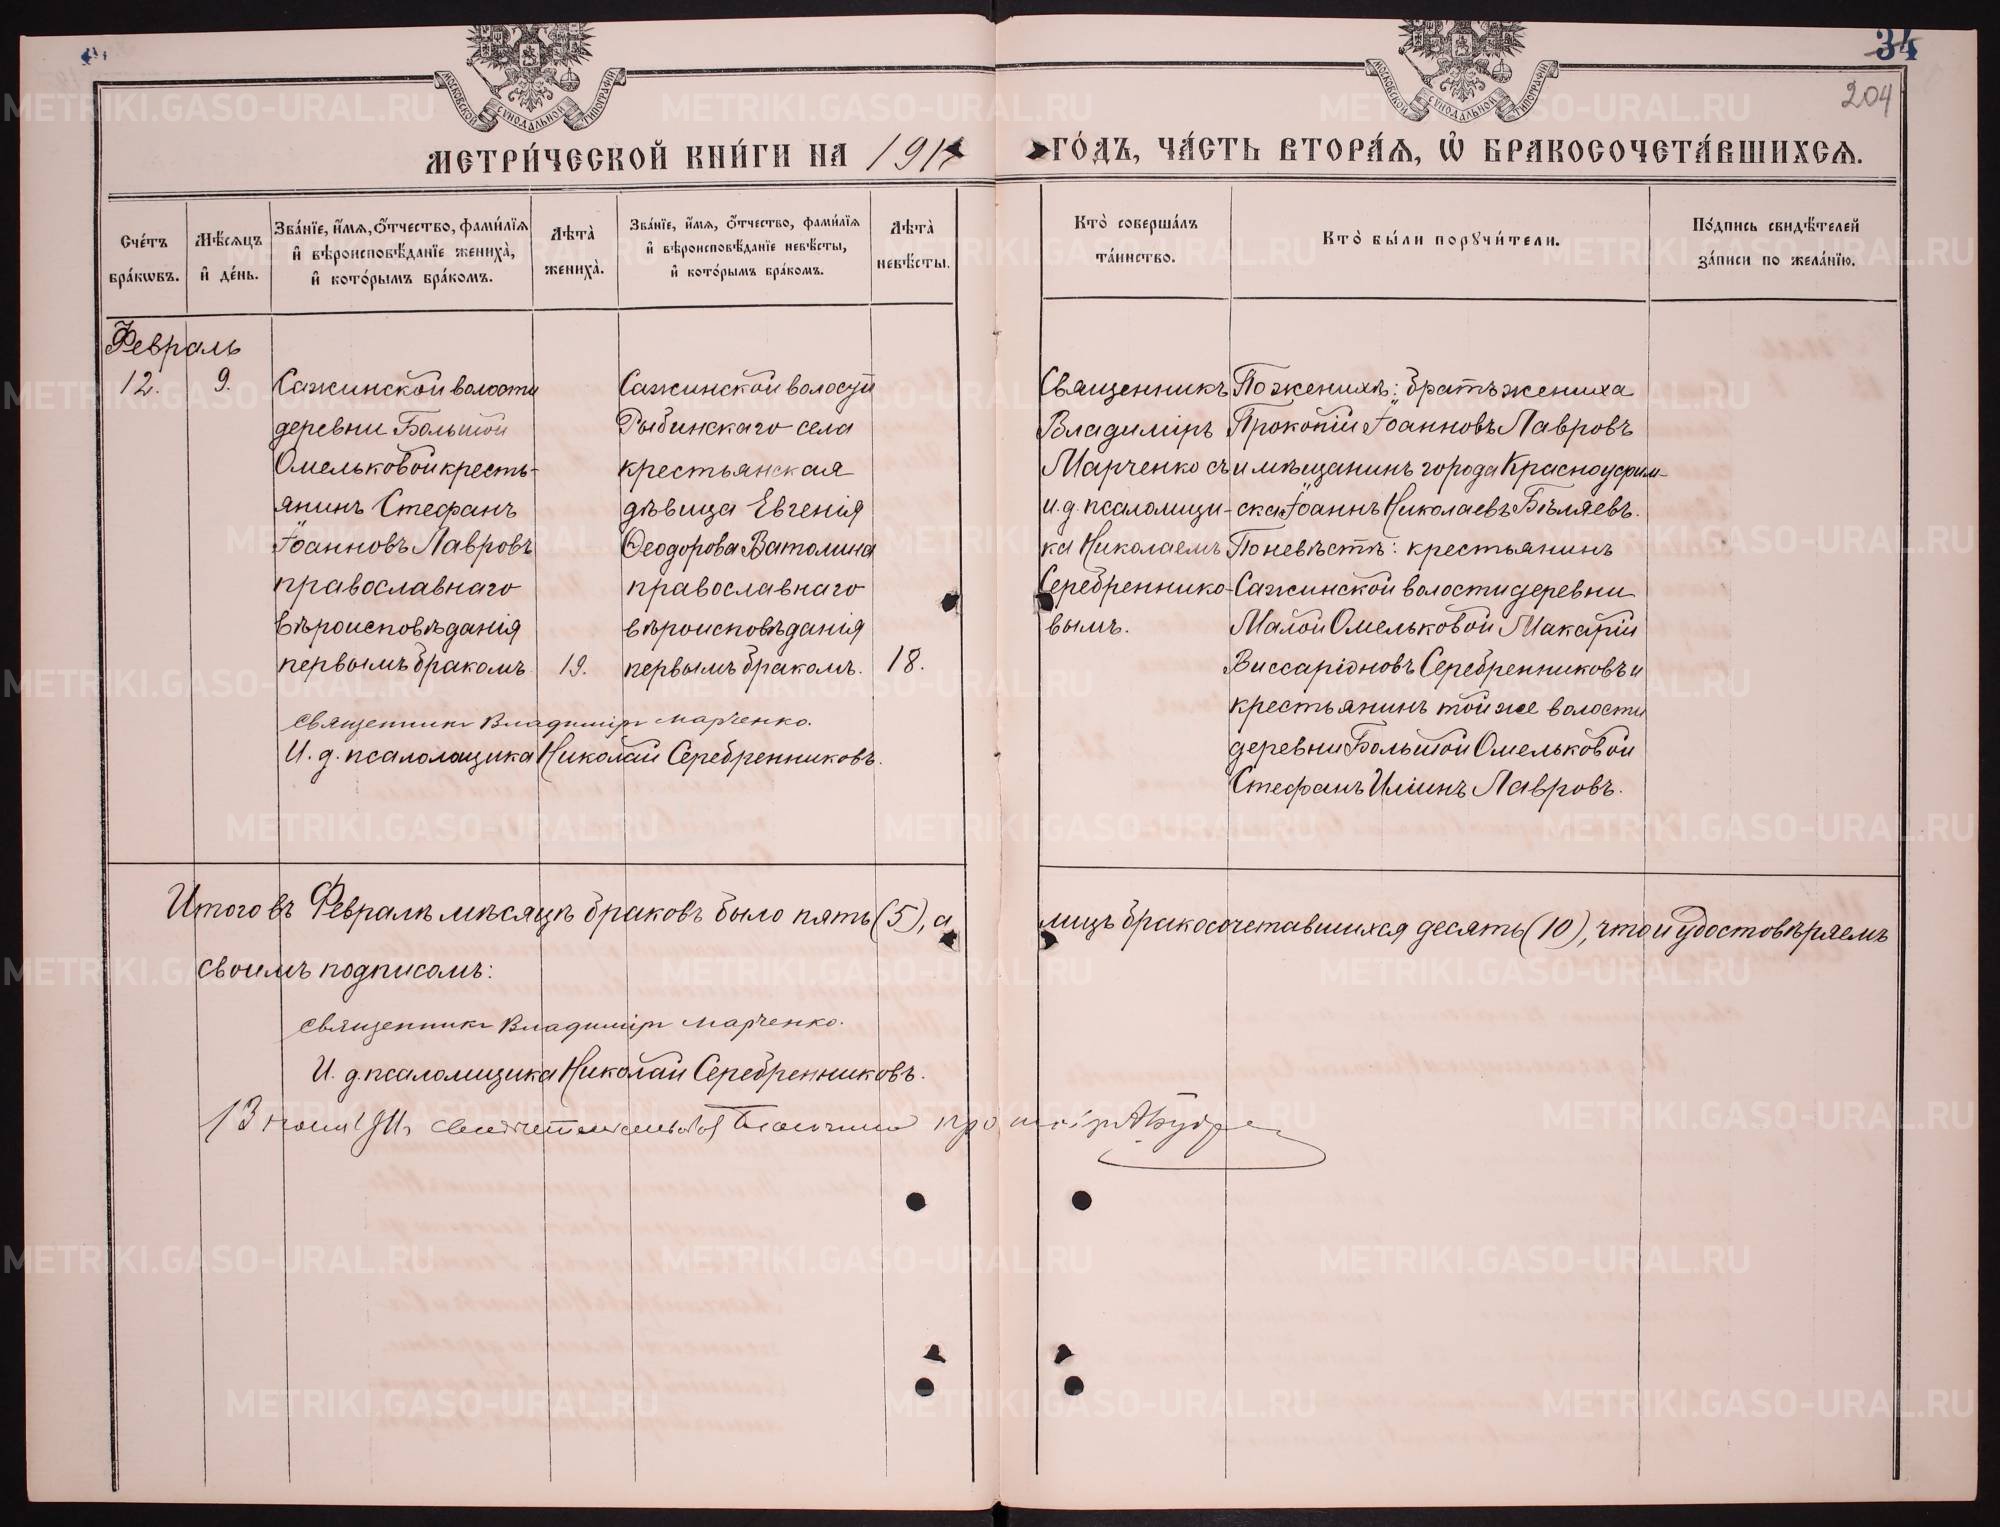 34
204
МОСКОВСКОЙ СѴНОДАЛЬНОЙ ТИПОГРАФІИ
МОСКОВСКОЙ СѴНОДАЛЬНОЙ ТИПОГРАФІИ
МЕТРИ́ЧЕСКОЙ КНИ́ГИ НА 1911 ГО́ДЪ, ЧА́СТЬ ВТОРА́Ѧ, Ѽ БРАКОСОЧЕТА́ВШИХСѦ.
Сче́тъ бра́кѡвъ.
Мѣ́сѧцъ и҆ де́нь.
Зва́нїе, и҆́мѧ, ѻ҆́тчество, фами́лїѧ
и҆ вѣроисповѣ́данїе жениха̀,
и҆ кото́рымъ бра́комъ.
Лѣта̀ жениха̀.
Зва́нїе, и҆́мѧ, ѻ҆́тчество, фами́лїѧ
и҆ вѣроисповѣ́данїе невѣ́сты,
и҆ кото́рымъ бра́комъ.
Лѣта̀ невѣ́сты.
Кто̀ соверша́лъ
та́инство.
Кто̀ бы́ли порꙋчи́тели.
По́дпись свидѣ́телей
за́писи по жела́нїю.
Февраль
12.
9.
Сажинской волости
деревни Большой
Омельковой кресть-
янинъ Стефанъ
Іоанновъ Лавровъ
православнаго
вѣроисповѣданія
первымъ бракомъ
19.
Сажинской волости
Рыбинскаго села
крестьянская
дѣвица Евгенія
Ѳеодорова Ватолина
православнаго
вѣроисповѣданія
первымъ бракомъ.
18.
Священникъ
Владиміръ
Марченко съ
и. д. псаломщи-
ка Николаемъ
Серебреннико-
вымъ.
По женихѣ: братъ жениха
Прокопій Іоанновъ Лавровъ
и мѣщанинъ города Красноуфим-
ска Іоаннъ Николаевъ Бѣляевъ.
По невѣстѣ: крестьянинъ
Сажинской волости деревни
Малой Омельковой Макарій
Виссаріоновъ Серебренниковъ и
крестьянинъ той же волости
деревни Большой Омельковой
Стефанъ Иліинъ Лавровъ.
Священникъ Владиміръ Марченко.
И. д. псаломщика Николай Серебренниковъ.
Итого въ Февралѣ мѣсяцѣ браковъ было пять (5), а лицъ бракосочетавшихся десять (10), что и удостовѣряемъ
своимъ подписомъ:
Священникъ Владиміръ Марченко.
И. д. псаломщика Николай Серебренниковъ.
13
METRIKI.GASO-URAL.RU